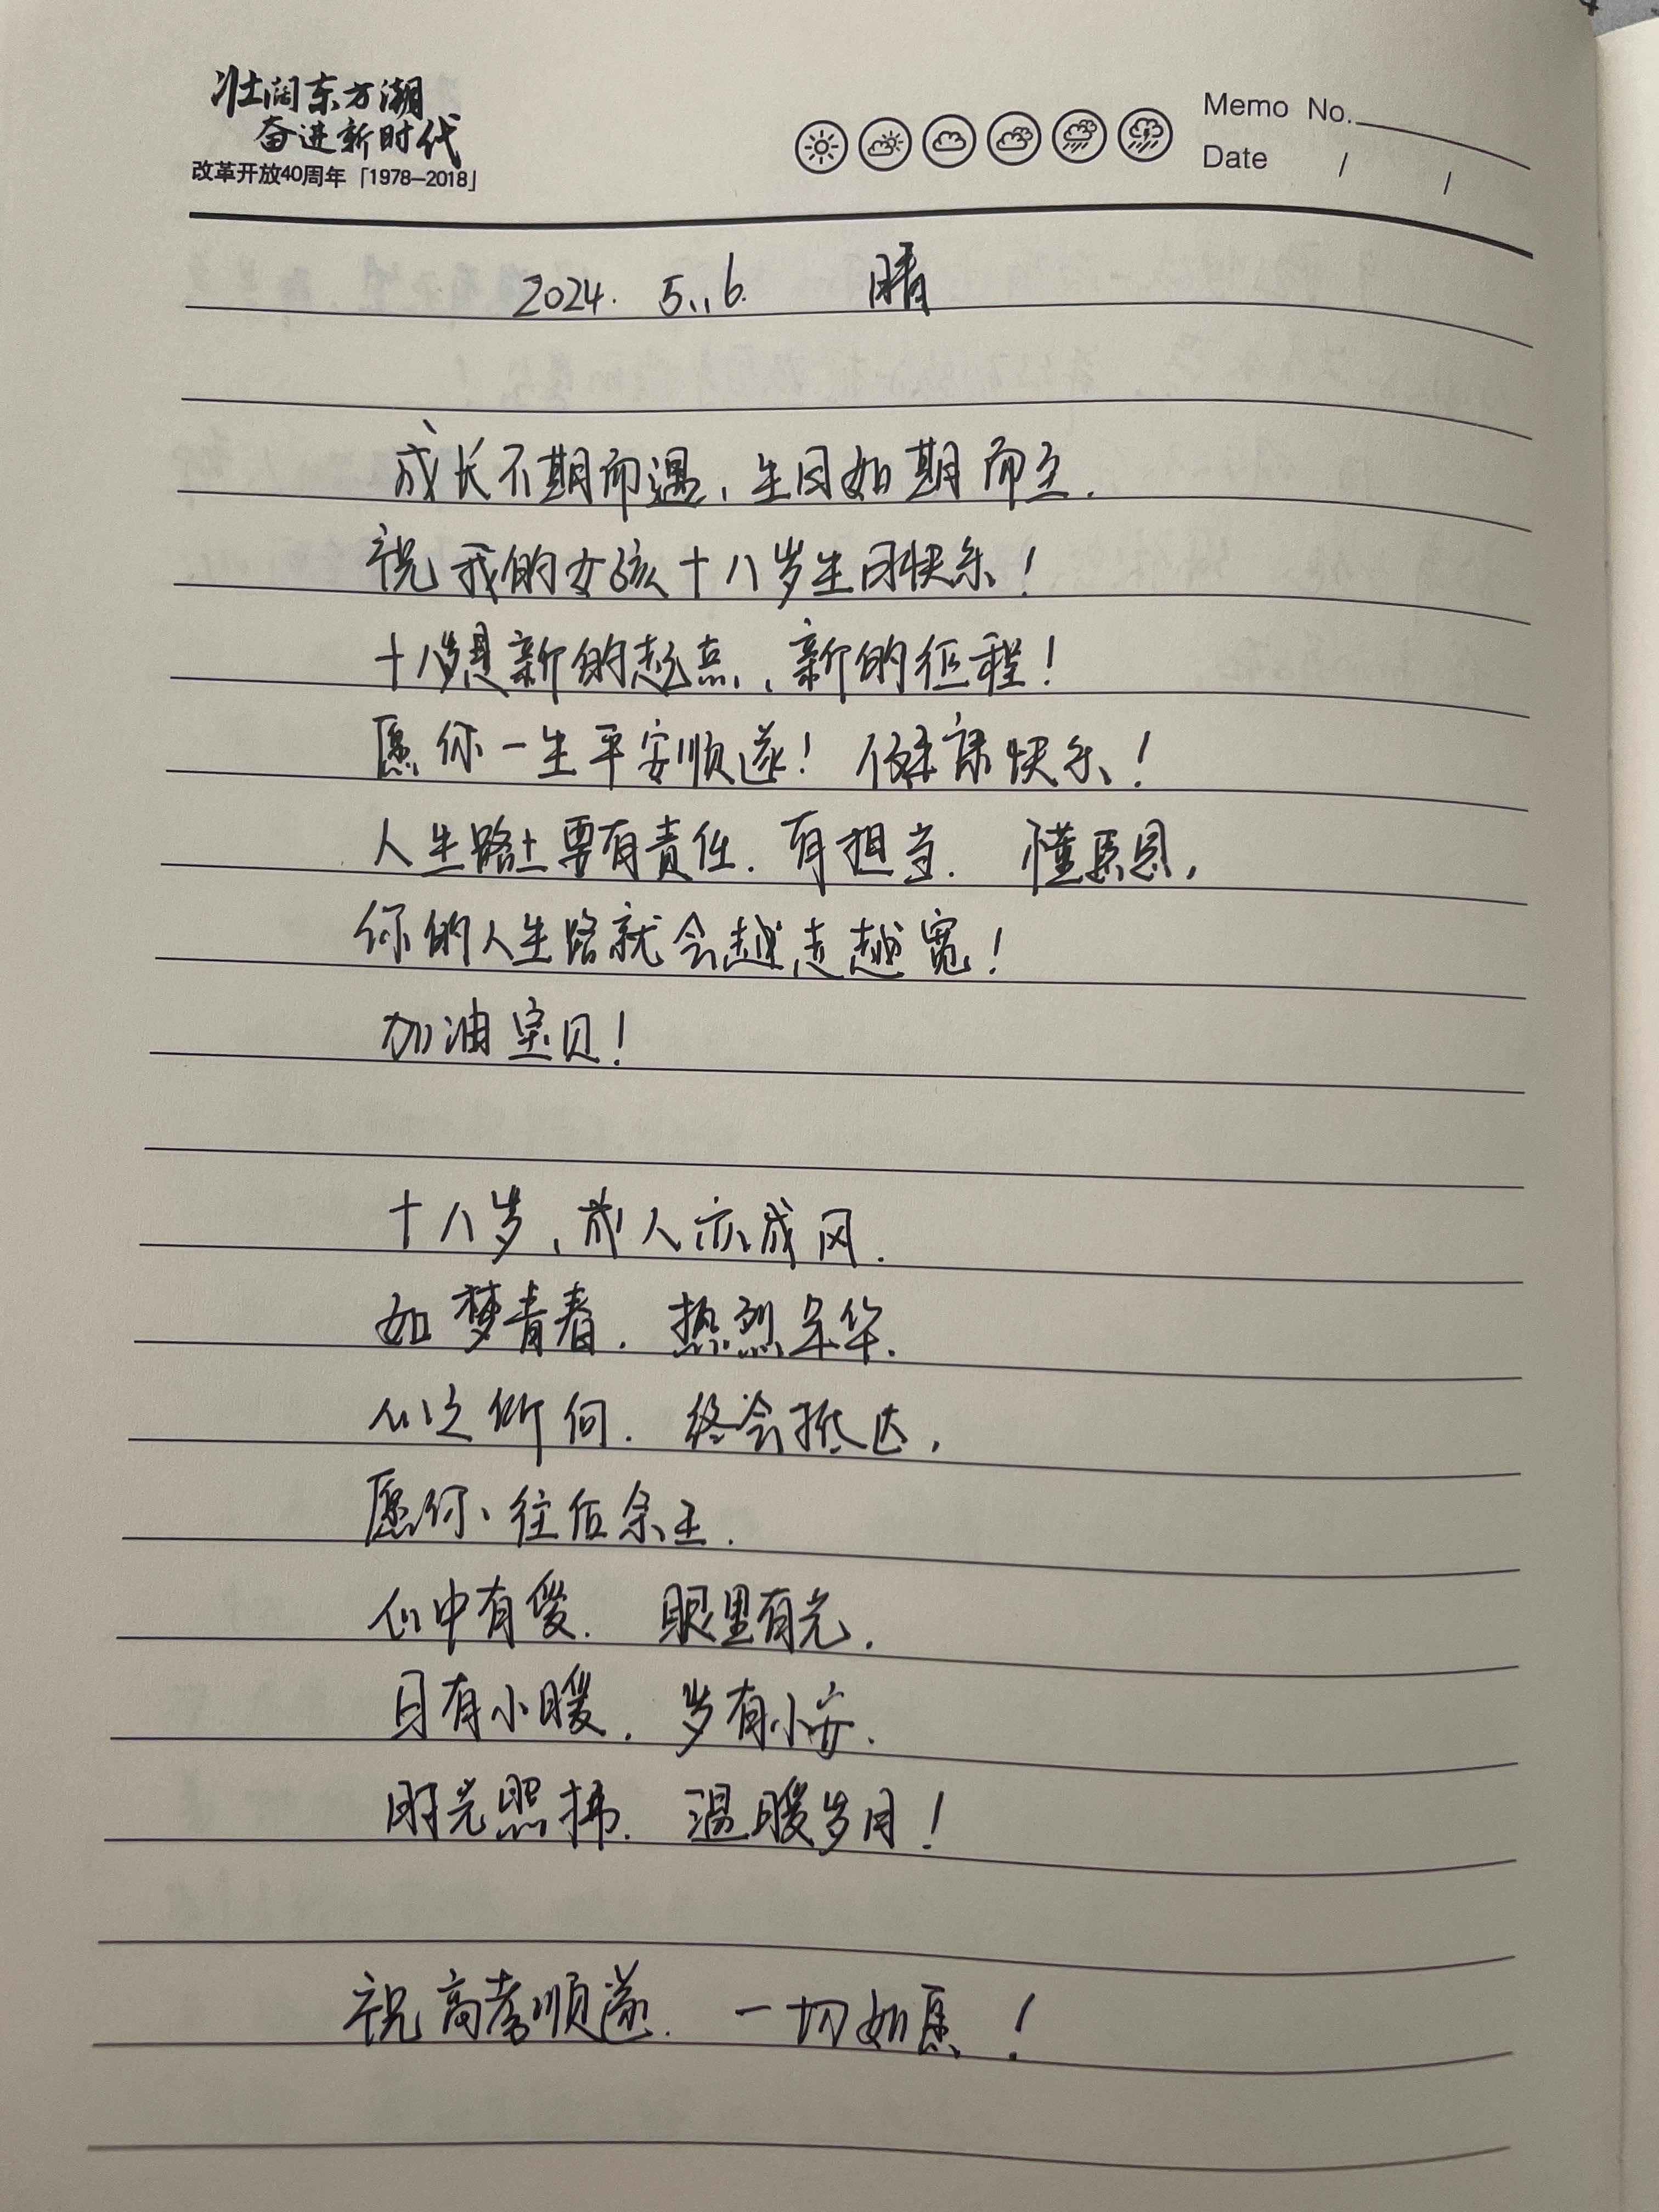 壮阔东方潮
奋进新时代
改革开放40周年「1978-2018」
Memo No.
Date / /
2024. 5..6. 晴
成长不期而遇、生日如期而至.
祝我的女孩十八岁生日快乐!
十八岁是新的起点、新的征程!
愿你一生平安顺遂! 健康快乐!
人生路上要有责任. 有担当. 懂感恩,
你的人生路就会越走越宽!
加油宝贝!
十八岁、成人亦成风.
如梦青春. 热烈年华.
心之所向. 终会抵达,
愿你、往后余生.
心中有爱. 眼里有光.
日有小暖. 岁有小安.
阳光照拂. 温暖岁月!
祝高考顺遂. 一切如愿!